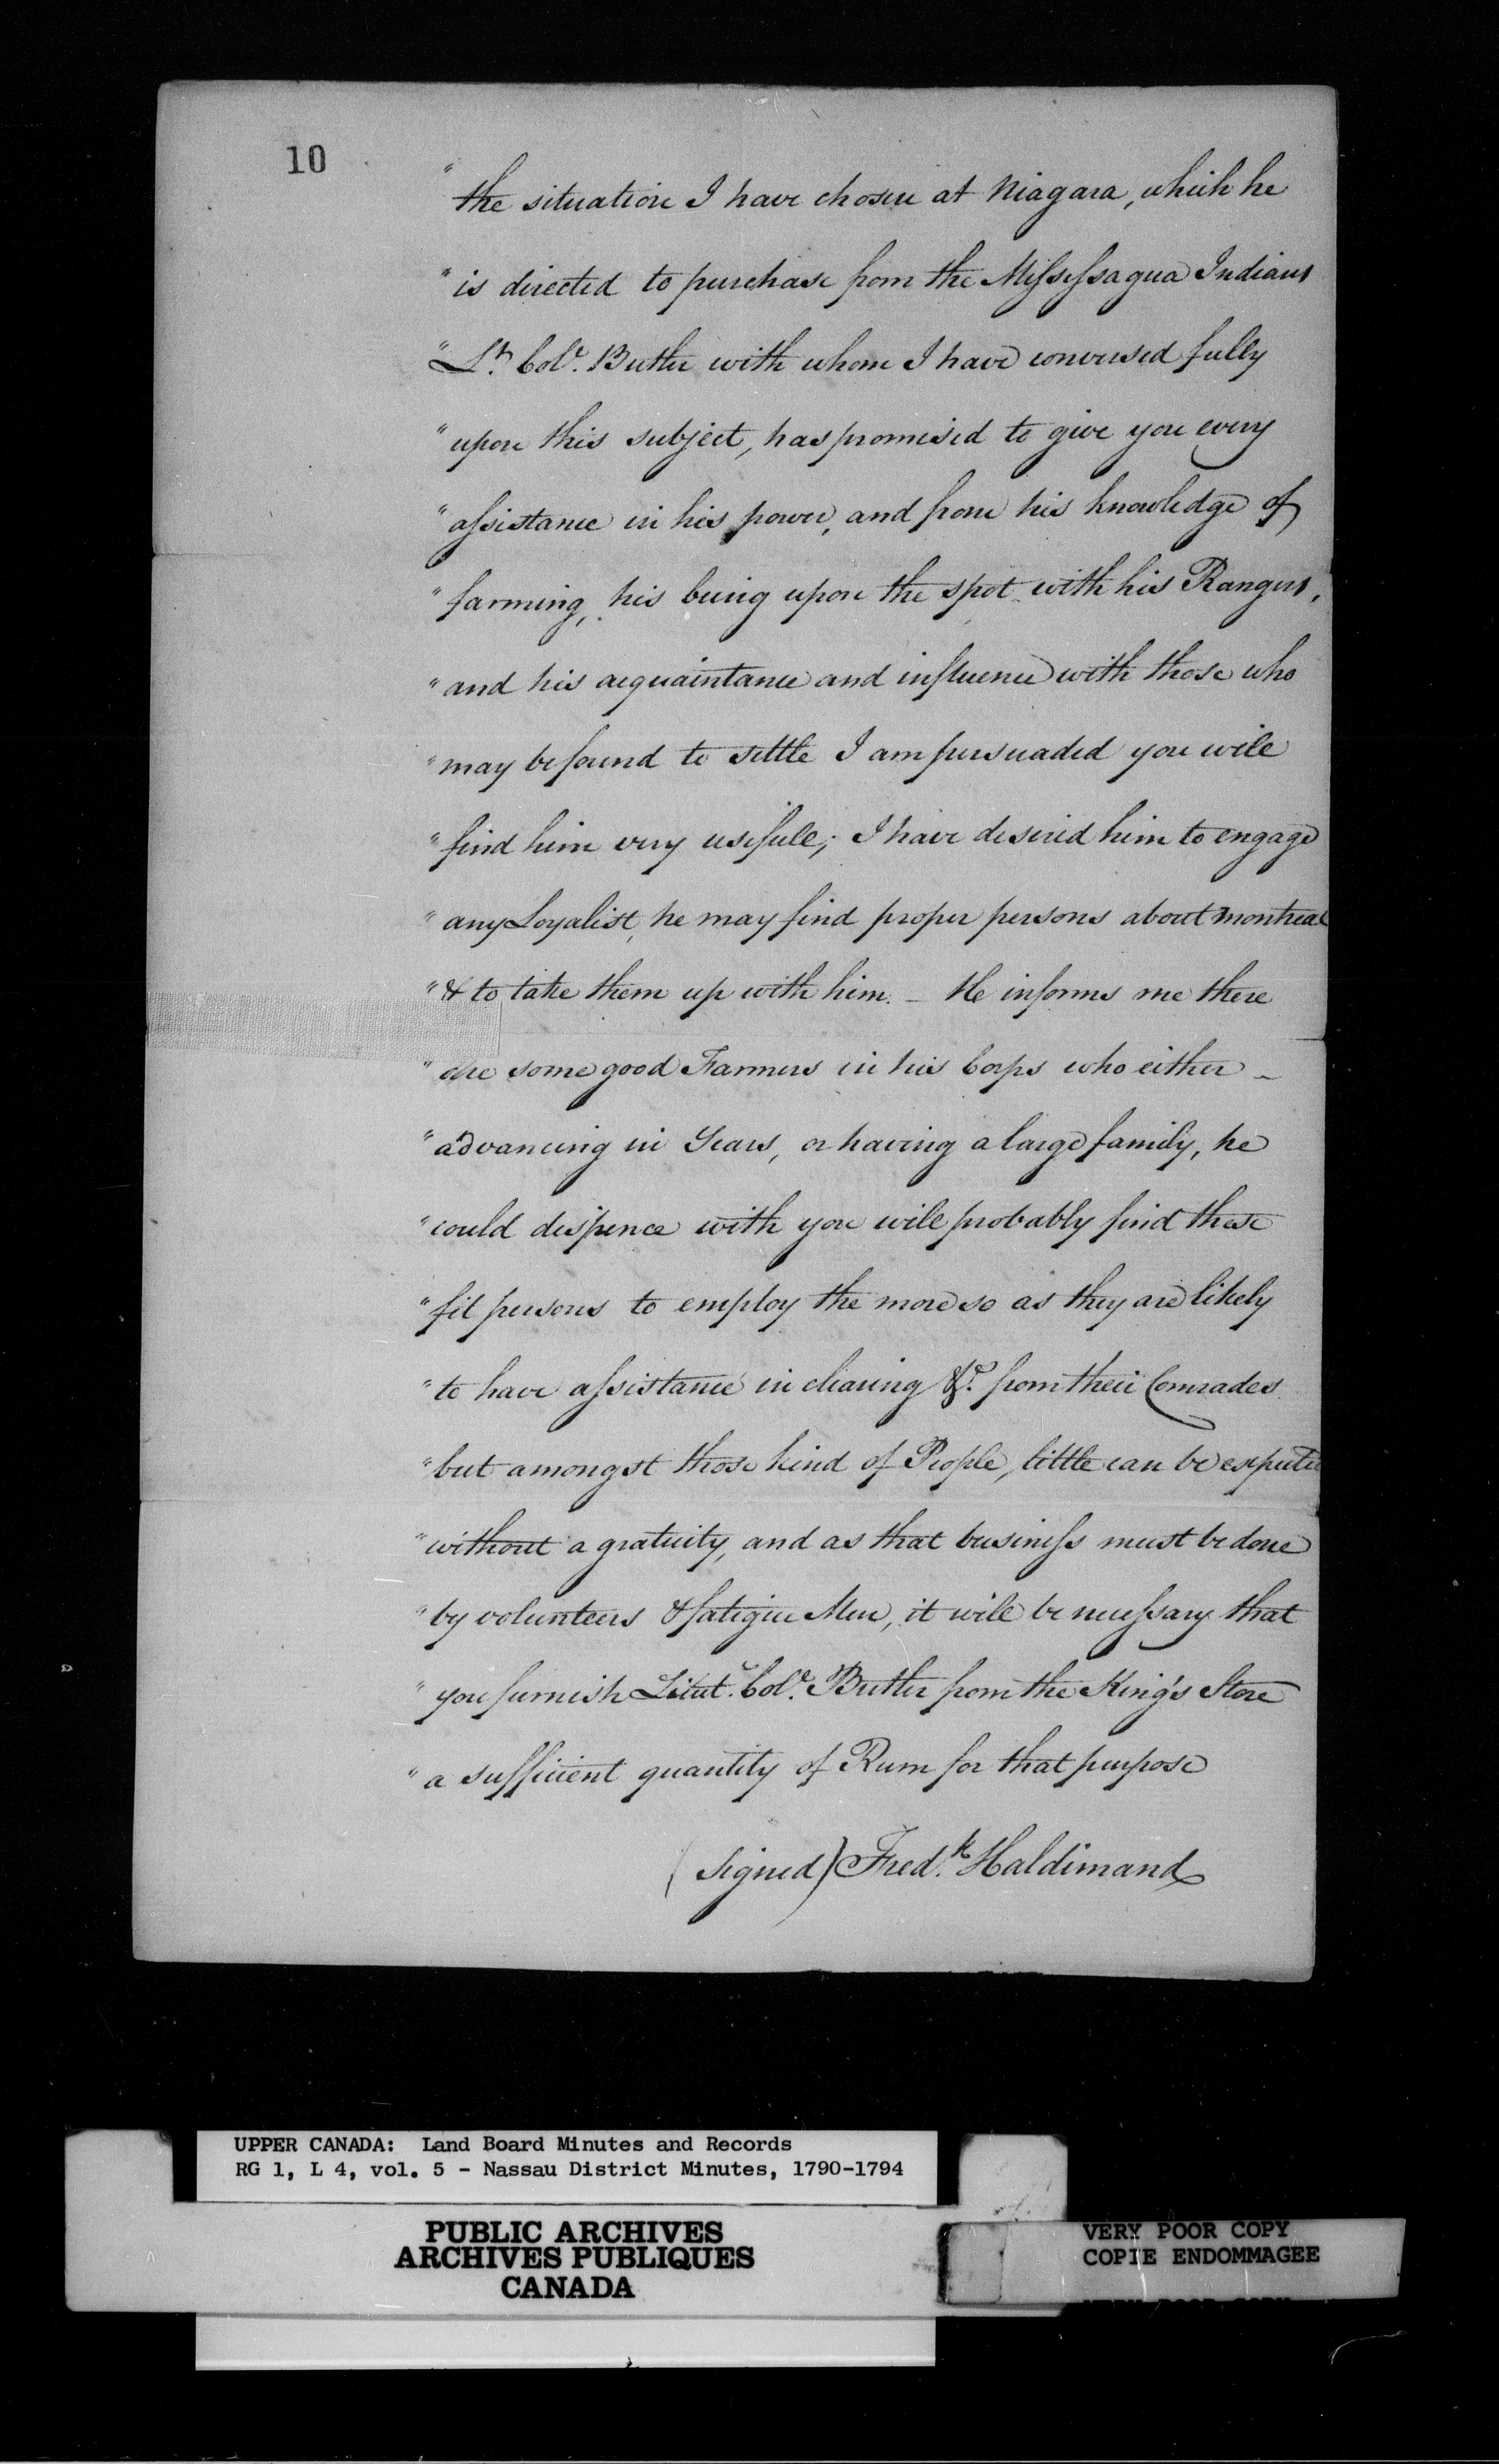 10
" the situation I have chosen at Niagara, which he
" is directed to purchase from the Missessagua Indians
" Lt. Colo. Butler with whom I have conversed fully
" upon this subject, has promised to give you every
" assistance in his power, and from his knowledge of
" farming, his being upon the spot with his Rangers,
" and his acquaintance and influence with those who
" may be found to settle I am persuaded you will
" find him very usefull; I have desired him to engage
" any Loyalist, he may find proper persons about Montreal
" & to take them up with him. – He informs me there
" are some good Farmers in his Corps who either –
" advancing in Years, or having a large family, he
" could dispence with you will probably find these
" fit persons to employ the more so as they are likely
" to have assistance in clearing &c. from their Comrades
" but amongst those kind of People, little can be expected
" without a gratuity, and as that business must be done
" by volunteers & fatigue Men, it will be necessary that
" you furnish Lieut. Colo. Butler from the King's Store
" a sufficient quantity of Rum for that purpose
(signed) Fredk. Haldimand
UPPER CANADA: Land Board Minutes and Records
RG 1, L 4, vol. 5 - Nassau District Minutes, 1790-1794
PUBLIC ARCHIVES
ARCHIVES PUBLIQUES
CANADA
VERY POOR COPY
COPIE ENDOMMAGEE